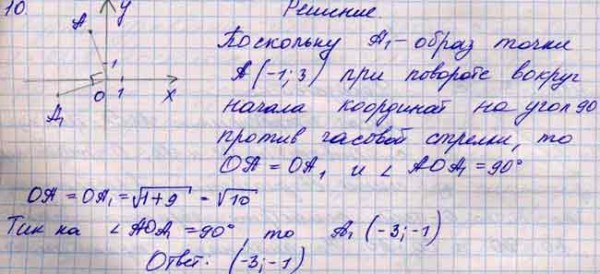 10.
Решение
y
A
1
A₁
O
1
x
Поскольку A₁ - образ точки
A (-1; 3) при повороте вокруг
начала координат на угол 90
против часовой стрелки, то
OA = OA₁ и ∠ AOA₁ = 90°
OA = OA₁ = √1+9 = √10
Так как ∠ AOA₁ = 90° то A₁ (-3; -1)
Ответ: (-3; -1)